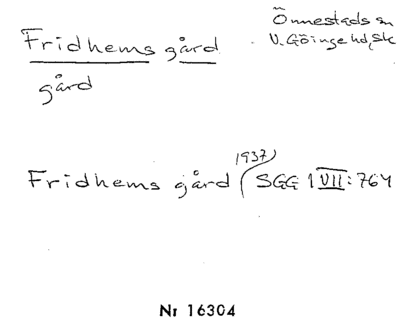 Fridhems gård
Önnestads sn
V. Göinge hd, Sk
gård
1937
Fridhems gård ( SGG 1 VII: 764
Nr 16304